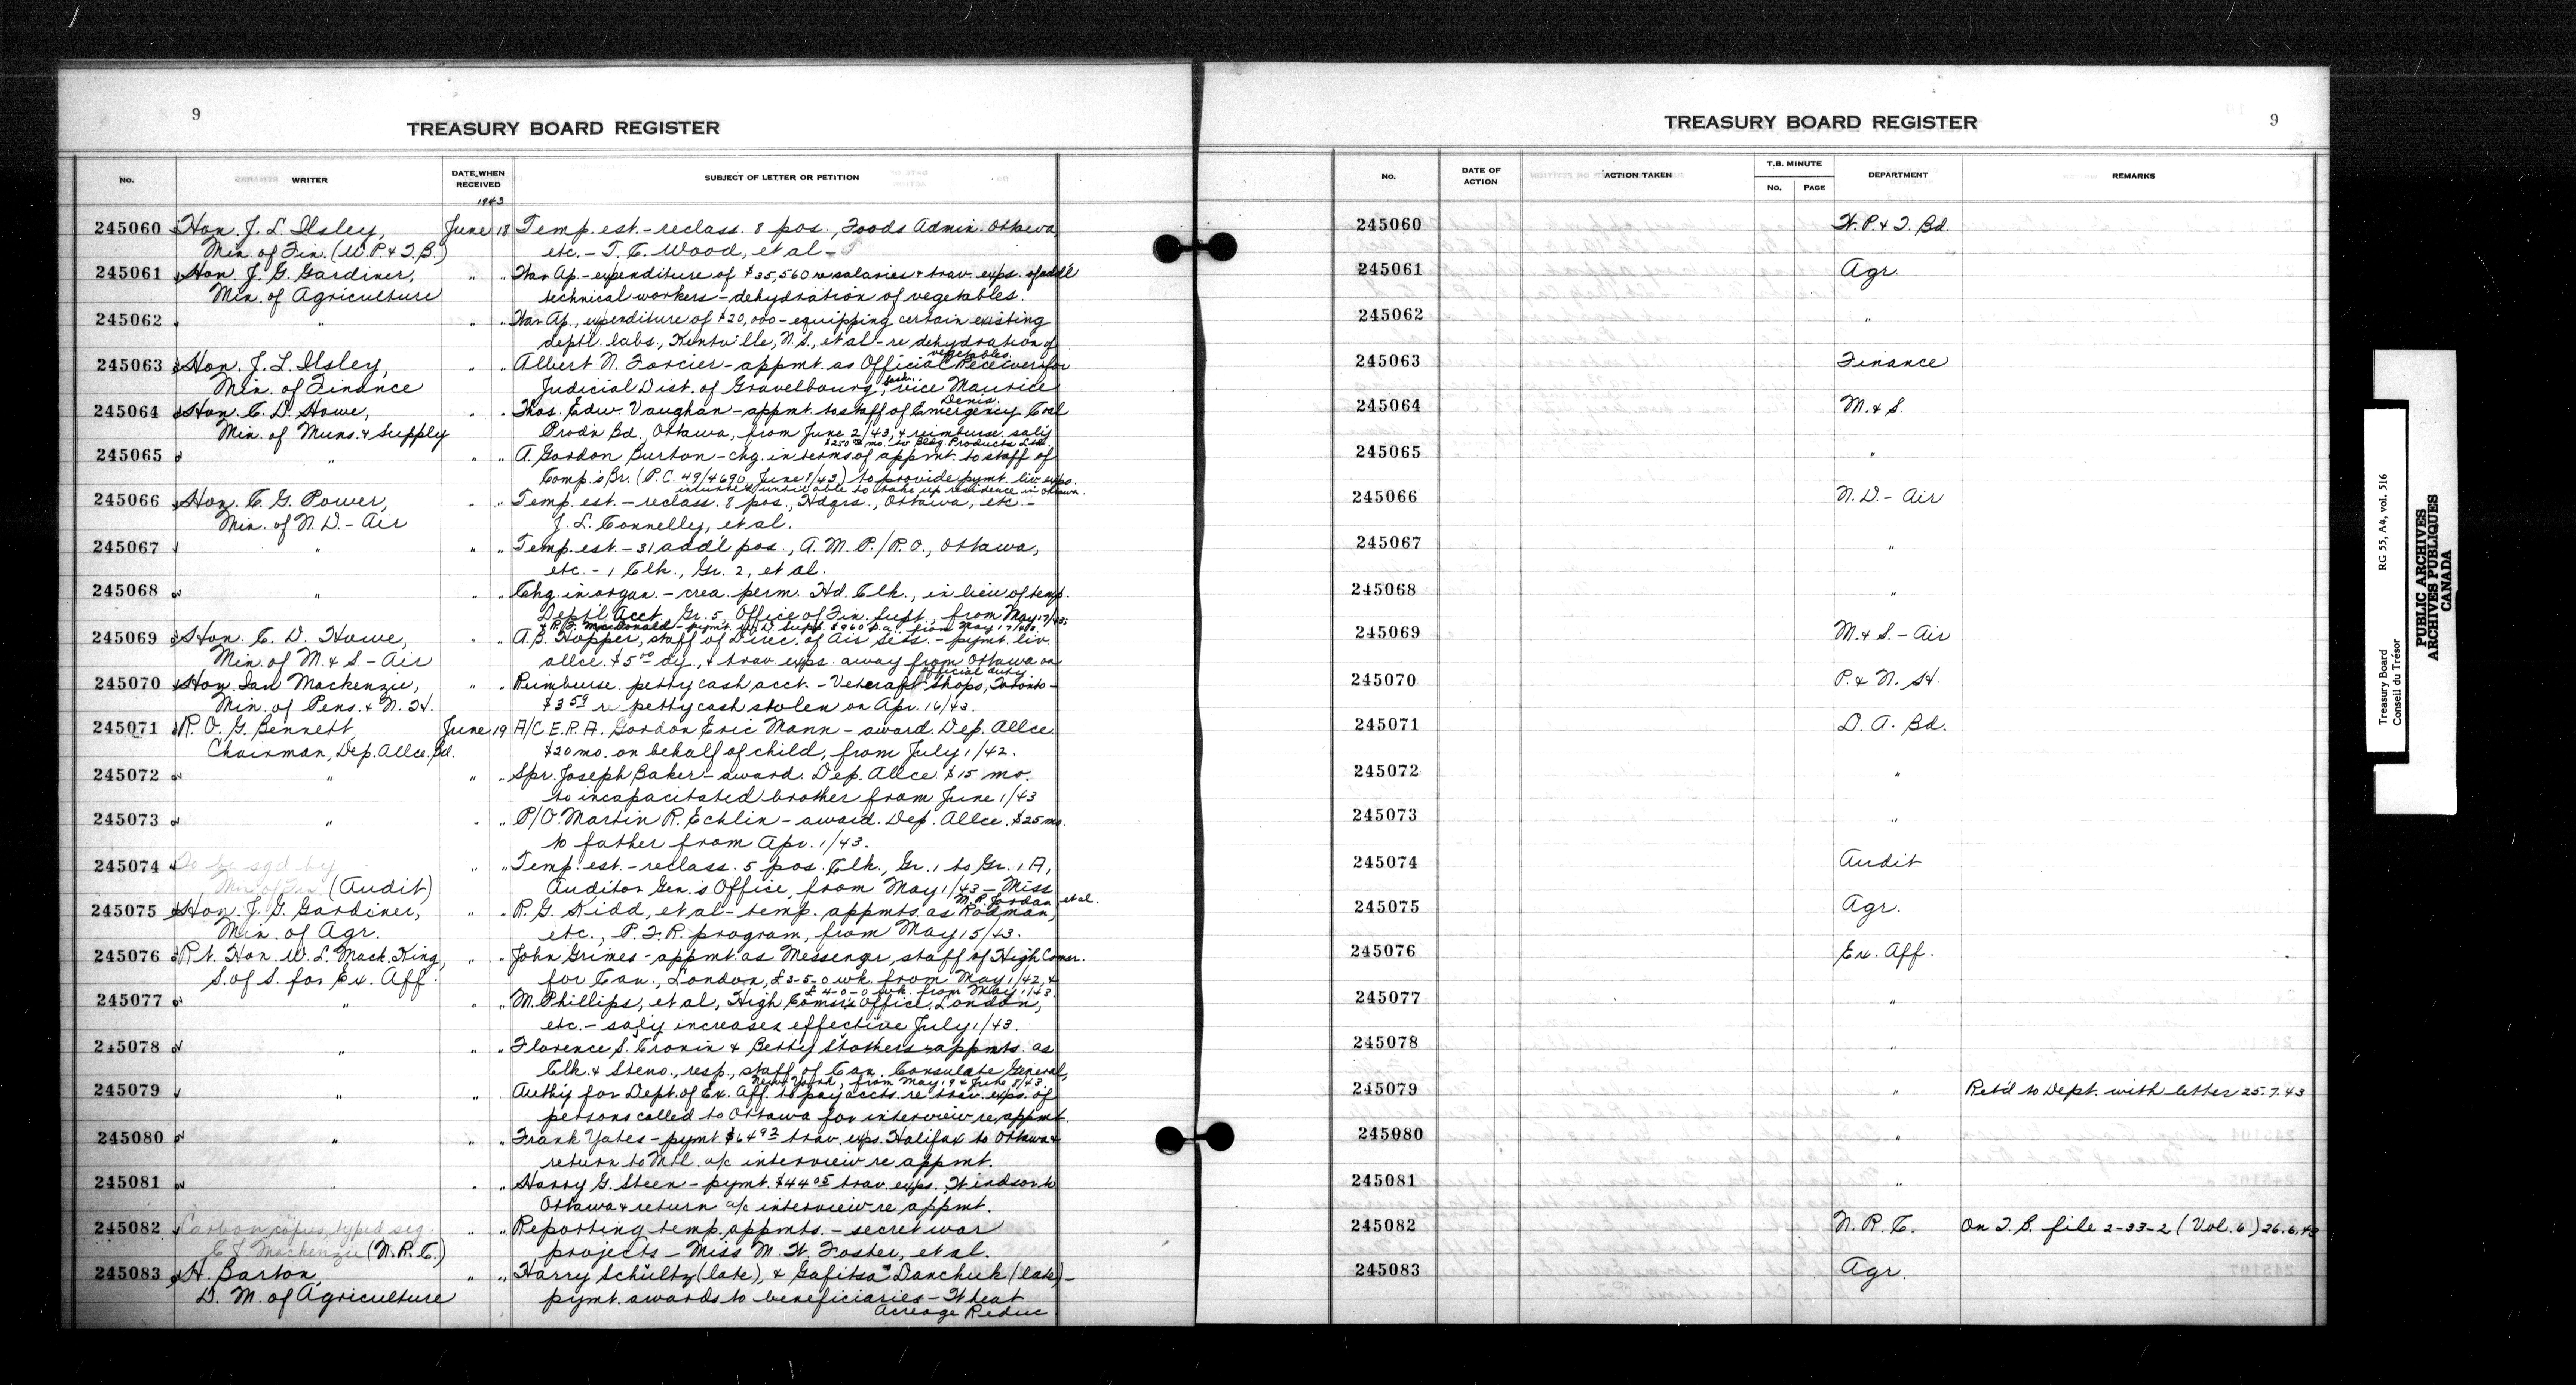 9
TREASURY BOARD REGISTER
No. WRITER DATE WHEN RECEIVED SUBJECT OF LETTER OR PETITION
1943
245060 Hon. J. L. Ilsley, June 18 Temp. est. - reclass. 8 pos., Foods Admin. Ottawa,
Min. of Fin. (W.P. & T.B.) etc. - T. C. Wood, et al -
245061 Hon. J. G. Gardiner, " " War Ap. - expenditure of $35,560 re salaries & trav. exps. of add'l
Min. of Agriculture technical workers - dehydration of vegetables.
245062 " " " War Ap., expenditure of $20,000 - equipping certain existing
dept'l. labs., Kentville, N.S., et al - re dehydration of
vegetables.
245063 Hon. J. L. Ilsley, " " Albert N. Forcier - appmt. as Official Receiver for
Min. of Finance Judicial Dist. of Gravelbourg, Sask. vice Maurice
Denis.
245064 Hon. C. D. Howe, " " Thos. Edw. Vaughan - appmt. to staff of Emergency Coal
Min. of Muns. & Supply Prod'n Bd., Ottawa, from June 2/43, & reimburse. sal'y
$250.00 mo. to Bldg. Products Ltd.
245065 " " " A. Gordon Burton - chg. in terms of appmt. to staff of
Comp.'s Br. (P.C. 49/4690, June 8/43) to provide pymt. liv. exps.
incurred until able to take up residence in Ottawa.
245066 Hon. C. G. Power, " " Temp. est. - reclass. 8 pos., Hdqrs., Ottawa, etc. -
Min. of N.D. - Air J. L. Connelly, et al.
245067 " " " Temp. est. - 31 add'l pos., A.M.P./R.O., Ottawa,
etc. - 1 Clk., Gr. 2, et al.
245068 " " " Chg. in organ. - crea. perm. Hd. Clk., in lieu of temp.
Dept'l Acct. Gr. 5, Office of Fin. Supt., from May 17/43;
245069 Hon. C. D. Howe, " " A. B. Hopper, staff of Direc. of Air Sess. - pymt. liv.
Min. of M. & S. - Air allce. $5.00 dy., & trav. exps. away from Ottawa on
official duty
245070 Hon. Ian Mackenzie, " " Reimburse. petty cash acct. - Vetcraft Shops, Toronto -
Min. of Pens. & N.H. $3.59 re petty cash stolen on Apr. 16/43.
245071 R. O. G. Bennett, June 19 A/C E.R.A. Gordon Eric Mann - award. Dep. Allce.
Chairman, Dep. Allce. Bd. $20 mo. on behalf of child, from July 1/42.
245072 " " " Spr. Joseph Baker - award. Dep. Allce. $15 mo.
to incapacitated brother from June 1/43
245073 " " " P/O. Martin R. Echlin - award. Dep. Allce. $25 mo.
to father from Apr. 1/43.
245074 To be sgd by " " Temp. est. - reclass. 5 pos. Clk., Gr. 1 to Gr. 1A,
Min. of Fin. (Audit) Auditor Gen.'s Office, from May 1/43 - Miss
M. P. Jordan, et al.
245075 Hon. J. G. Gardiner, " " R. G. Kidd, et al - temp. appmts. as Rodman,
Min. of Agr. etc., P.F.R. program, from May 15/43.
245076 Rt. Hon. W. L. Mack. King, " " John Grimes - appmt. as Messenger, staff of High Comsr.
S. of S. for Ex. Aff. for Can., London, £3-5-0 wk. from May 1/42, &
£4-0-0 wk. from May 1/43.
245077 " " " M. Phillips, et al, High Comsr's Office, London,
etc. - sal'y increases effective July 1/43.
245078 " " " Florence S. Cronin & Betty Stothers - appmts. as
Clk. & Steno., resp., staff of Can. Consulate General,
New York, from May 19 & June 8/43.
245079 " " " Auth'y for Dept. of Ex. Aff. to pay accts. re trav. exps. of
persons called to Ottawa for interview re appmt.
245080 " " " Frank Yates - pymt. $64.93 trav. exps. Halifax to Ottawa &
return to Mtl. a/c interview re appmt.
245081 " " " Harry G. Steen - pymt. $44.05 trav. exps. Windsor to
Ottawa & return a/c interview re appmt.
245082 Carbon copies, typed sig. " " Reporting temp. appmts. - secret war
C J Mackenzie (N.R.C.) projects - Miss M. W. Foster, et al.
245083 H. Barton, " " Harry Schultz (late), & Gafitsa Danchuk (late) -
D. M. of Agriculture pymt. awards to beneficiaries - Wheat
Acreage Reduc
TREASURY BOARD REGISTER
9
No. DATE OF ACTION ACTION TAKEN T.B. MINUTE No. PAGE DEPARTMENT REMARKS
245060 W.P. & T. Bd.
245061 Agr.
245062 "
245063 Finance
245064 M. & S.
245065 "
245066 N.D. - Air
245067 "
245068 "
245069 M. & S. - Air
245070 P. & N. H.
245071 D. A. Bd.
245072 "
245073 "
245074 Audit
245075 Agr.
245076 Ex. Aff.
245077 "
245078 "
245079 " Ret'd to Dept. with letter 25.7.43
245080 "
245081 "
245082 N. R. C. On T.B. file 2-33-2 (Vol. 6) 26.6.43
245083 Agr.
Treasury Board RG 55, A4, vol. 516
Conseil du Trésor
PUBLIC ARCHIVES
ARCHIVES PUBLIQUES
CANADA